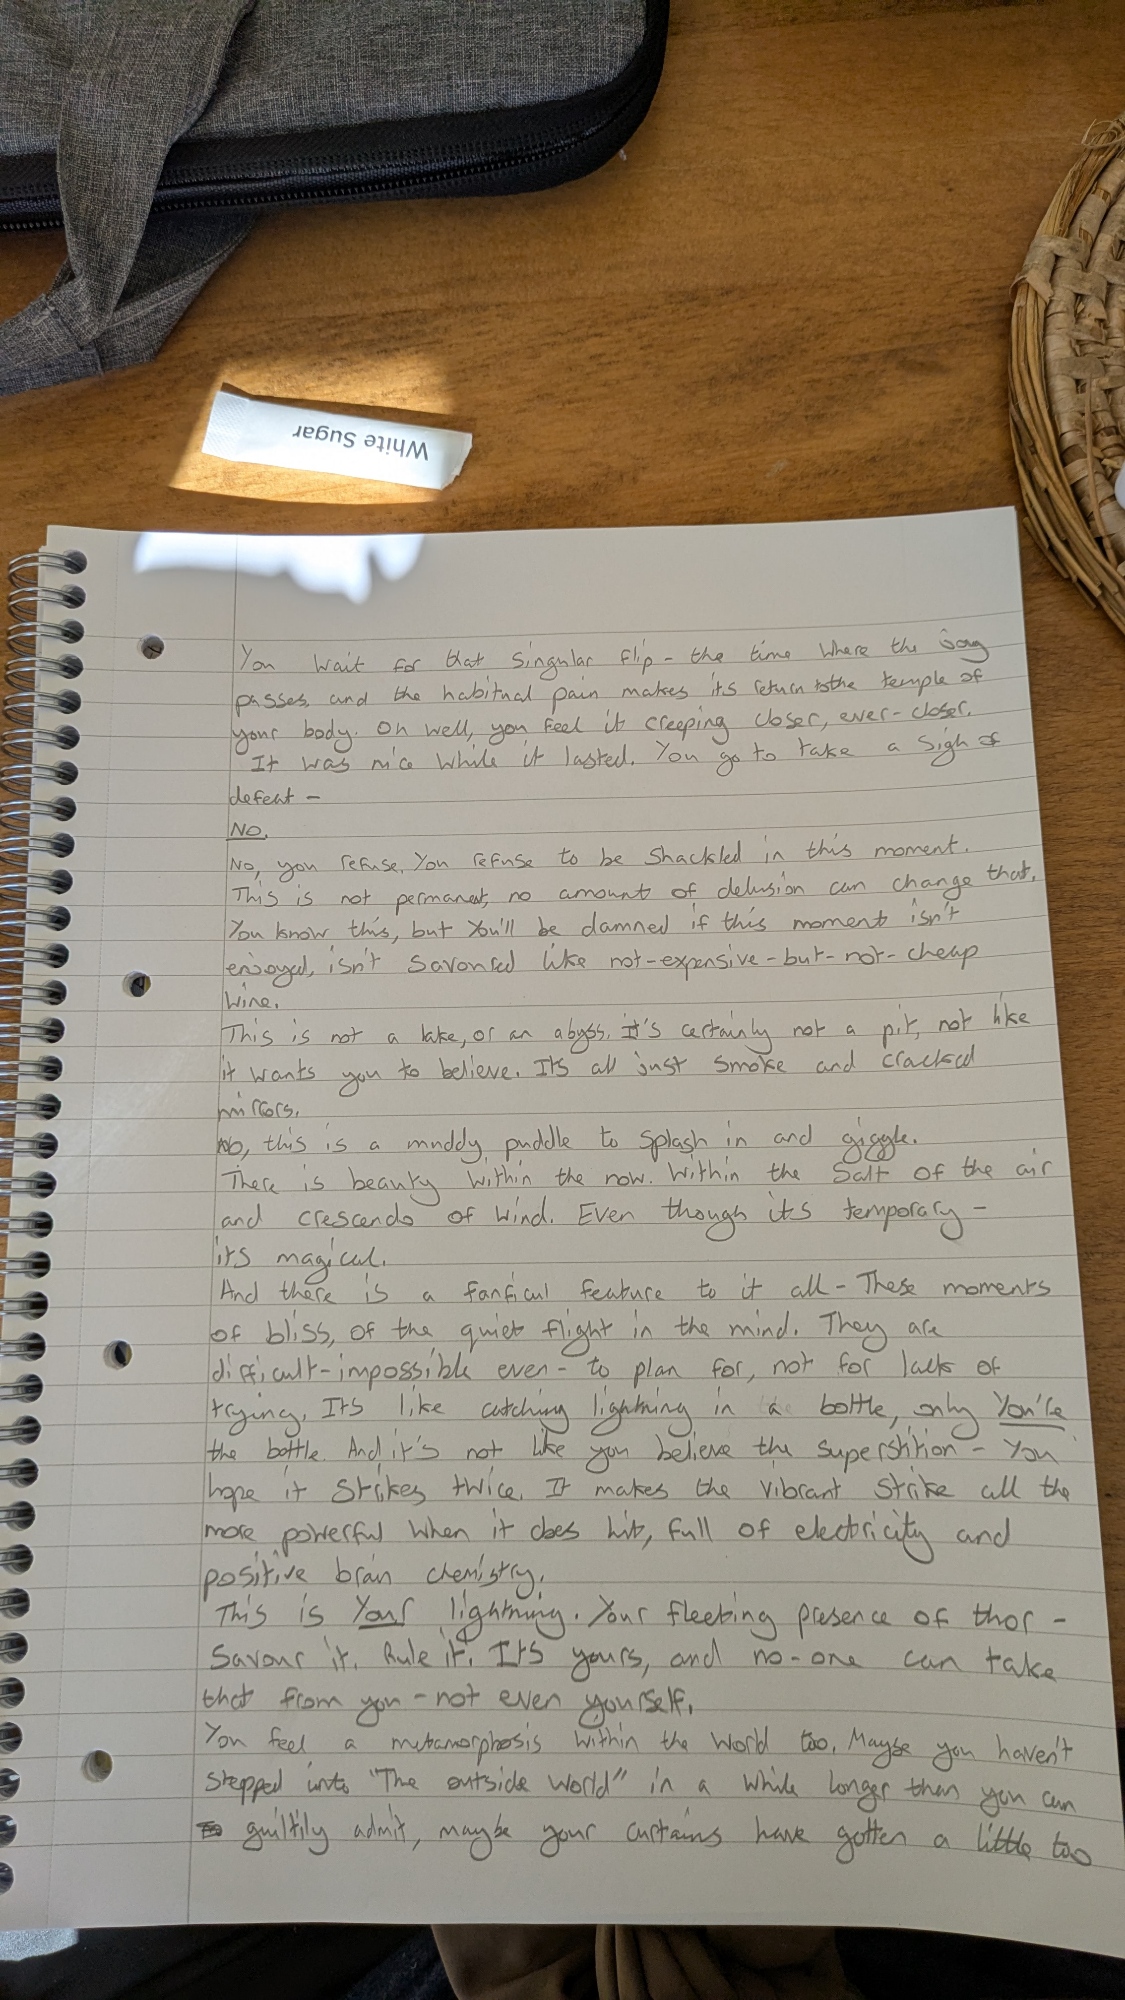 White Sugar
You wait for that singular flip - the time where the
passes, and the habitual pain makes its return to the temple of
your body. Oh well, you feel it creeping closer, ever-closer.
It was nice while it lasted. You go to take a sigh of
defeat -
No.
No, you refuse. You refuse to be shackled in this moment.
This is not permanent, no amount of delusion can change that.
You know this, but you'll be damned if this moment isn't
enjoyed, isn't savoured like not-expensive-but-not-cheap
wine.
This is not a lake, or an abyss. It's certainly not a pit, not like
it wants you to believe. Its all just smoke and cracked
mirrors.
No, this is a muddy puddle to splash in and giggle.
There is beauty within the now. Within the salt of the air
and crescendo of wind. Even though its temporary -
its magical.
And there is a fanficul feature to it all - These moments
of bliss, of the quiet flight in the mind. They are
difficult-impossible even- to plan for, not for lack of
trying. Its like catching lightning in a bottle, only You're
the bottle. And it's not like you believe the superstition - You
hope it strikes twice. It makes the vibrant strike all the
more powerful when it does hit, full of electricity and
positive brain chemistry.
This is Your lightning. Your fleeting presence of thor -
Savour it. Rule it. Its yours, and no-one can take
that from you - not even yourself.
You feel a metamorphosis within the world too. Maybe you haven't
stepped into "The outside world" in a while longer than you can
guiltily admit, maybe your curtains have gotten a little too